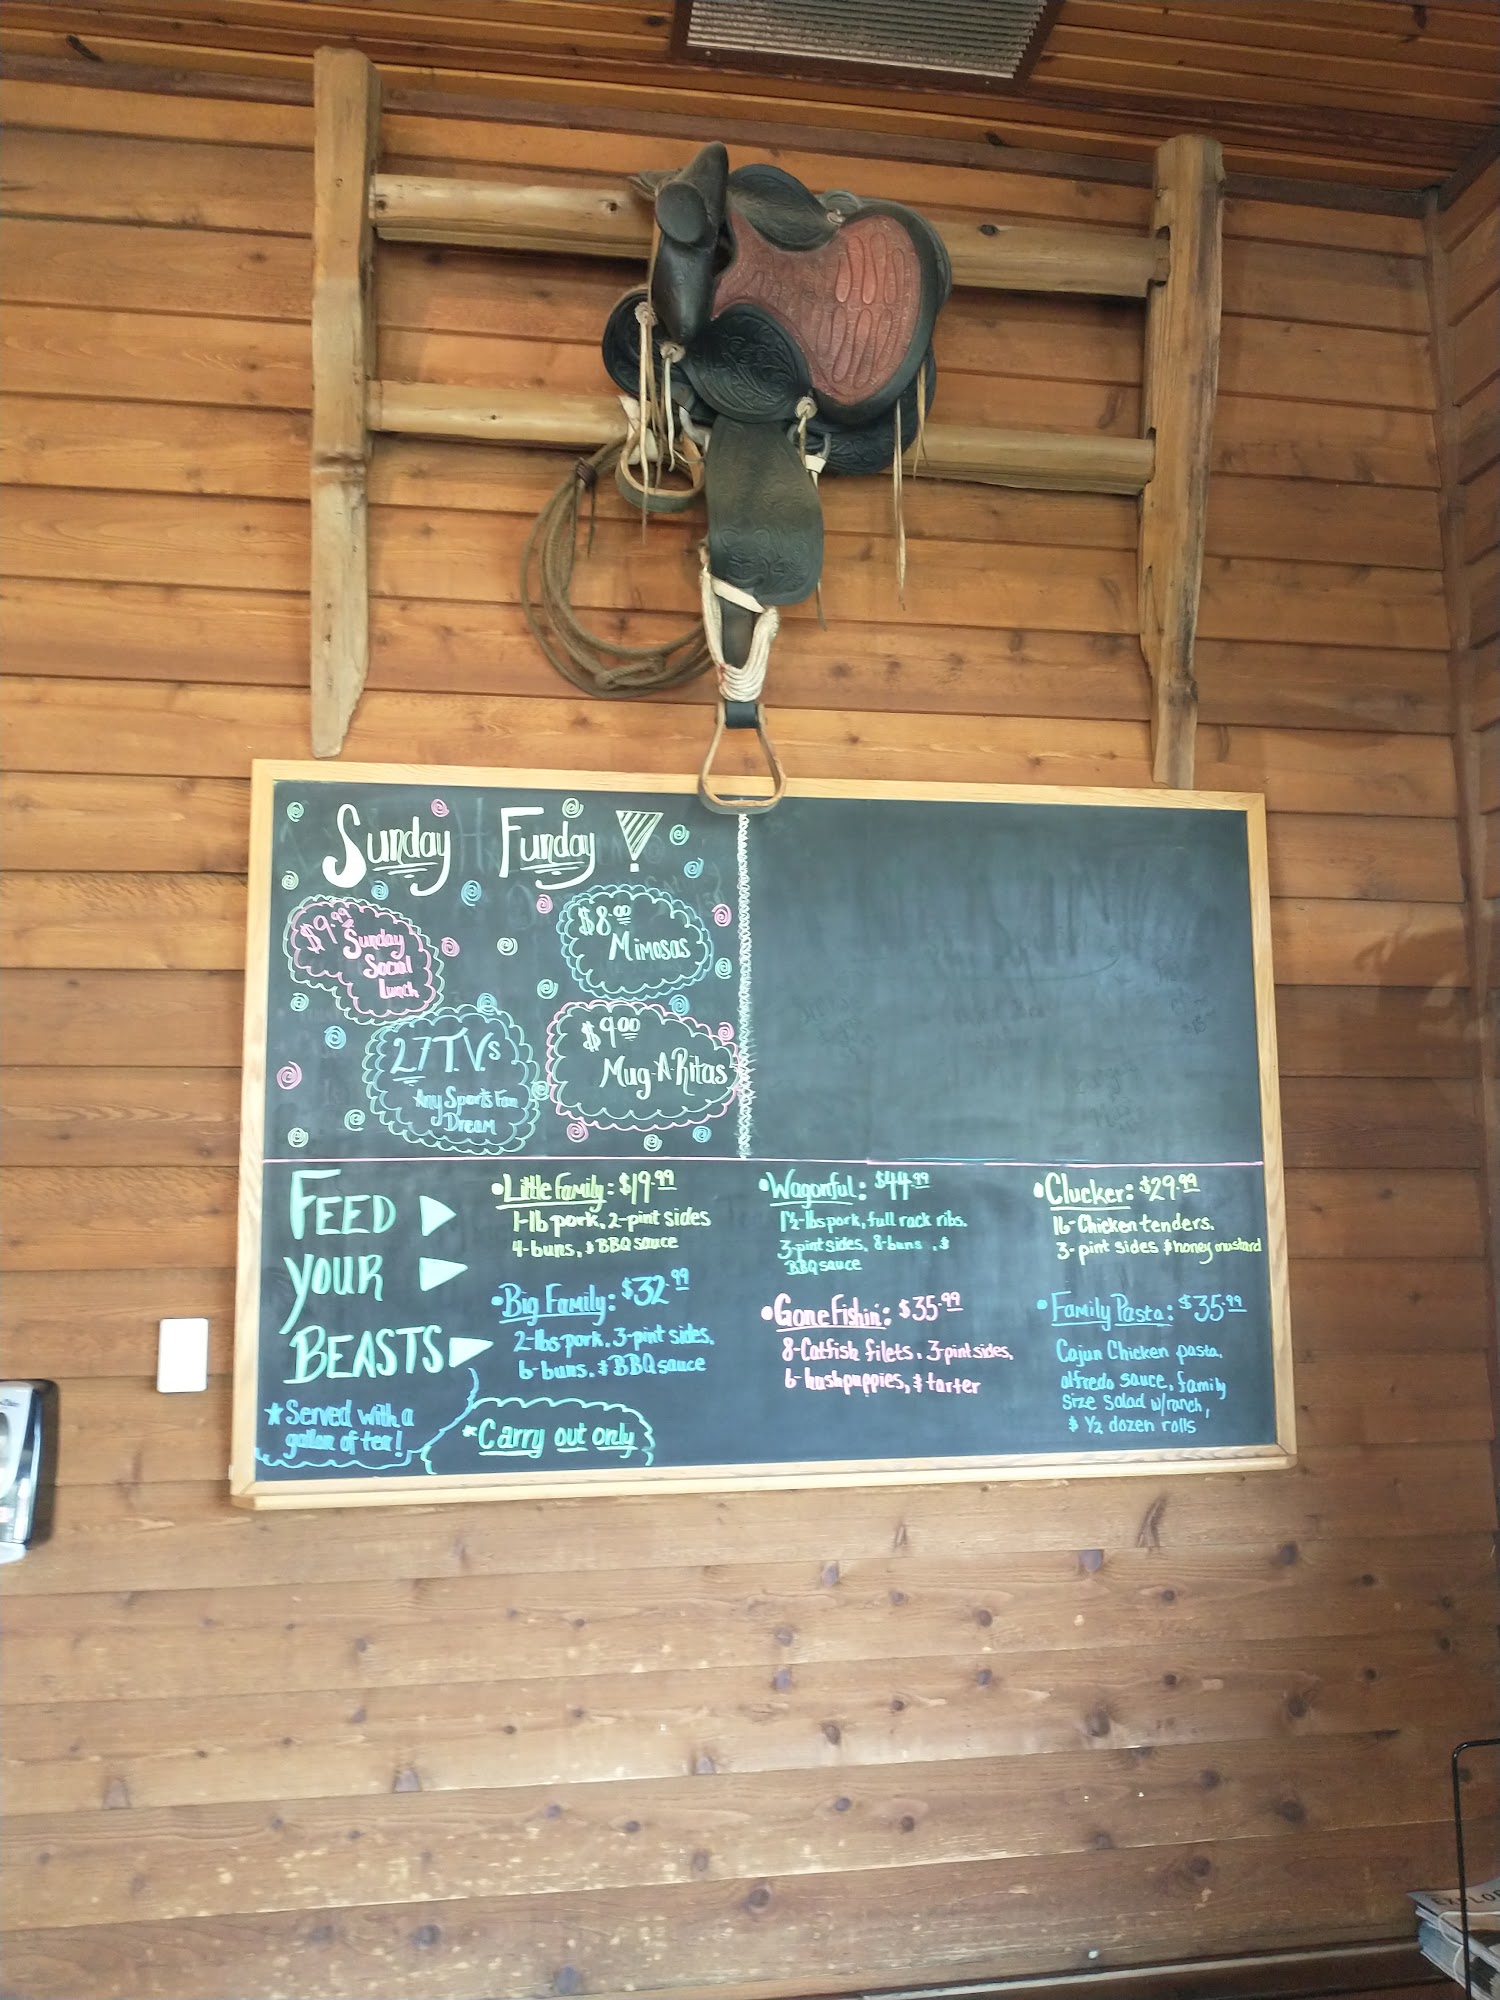 Sunday Funday!
$9.99 Sunday
Social
Lunch
$8.00
Mimosas
27 T.V.s
Any Sports Fan
Dream
$9.00
Mug-A-Ritas
FEED
YOUR
BEASTS
★ Served with a
gallon of tea!
*Carry out only
•Little Family: $19.99
1-lb pork, 2-pint sides
4-buns, & BBQ sauce
•Big Family: $32.99
2-lbs pork, 3-pint sides,
6-buns, & BBQ sauce
•Wagonful: $44.99
1½-lbs pork, full rack ribs.
3-pint sides, 8-buns, &
BBQ sauce
•Gone Fishin': $35.99
8-Catfish filets, 3-pint sides,
6-hushpuppies, & tarter
•Clucker: $29.99
16-Chicken tenders.
3-pint sides & honey mustard
•Family Pasta: $35.99
Cajun Chicken pasta,
alfredo sauce, family
size salad w/ranch,
& ½ dozen rolls